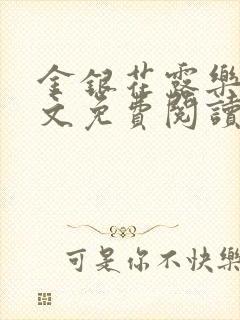 金銀花露樂
文免費閱讀
可是你不快樂